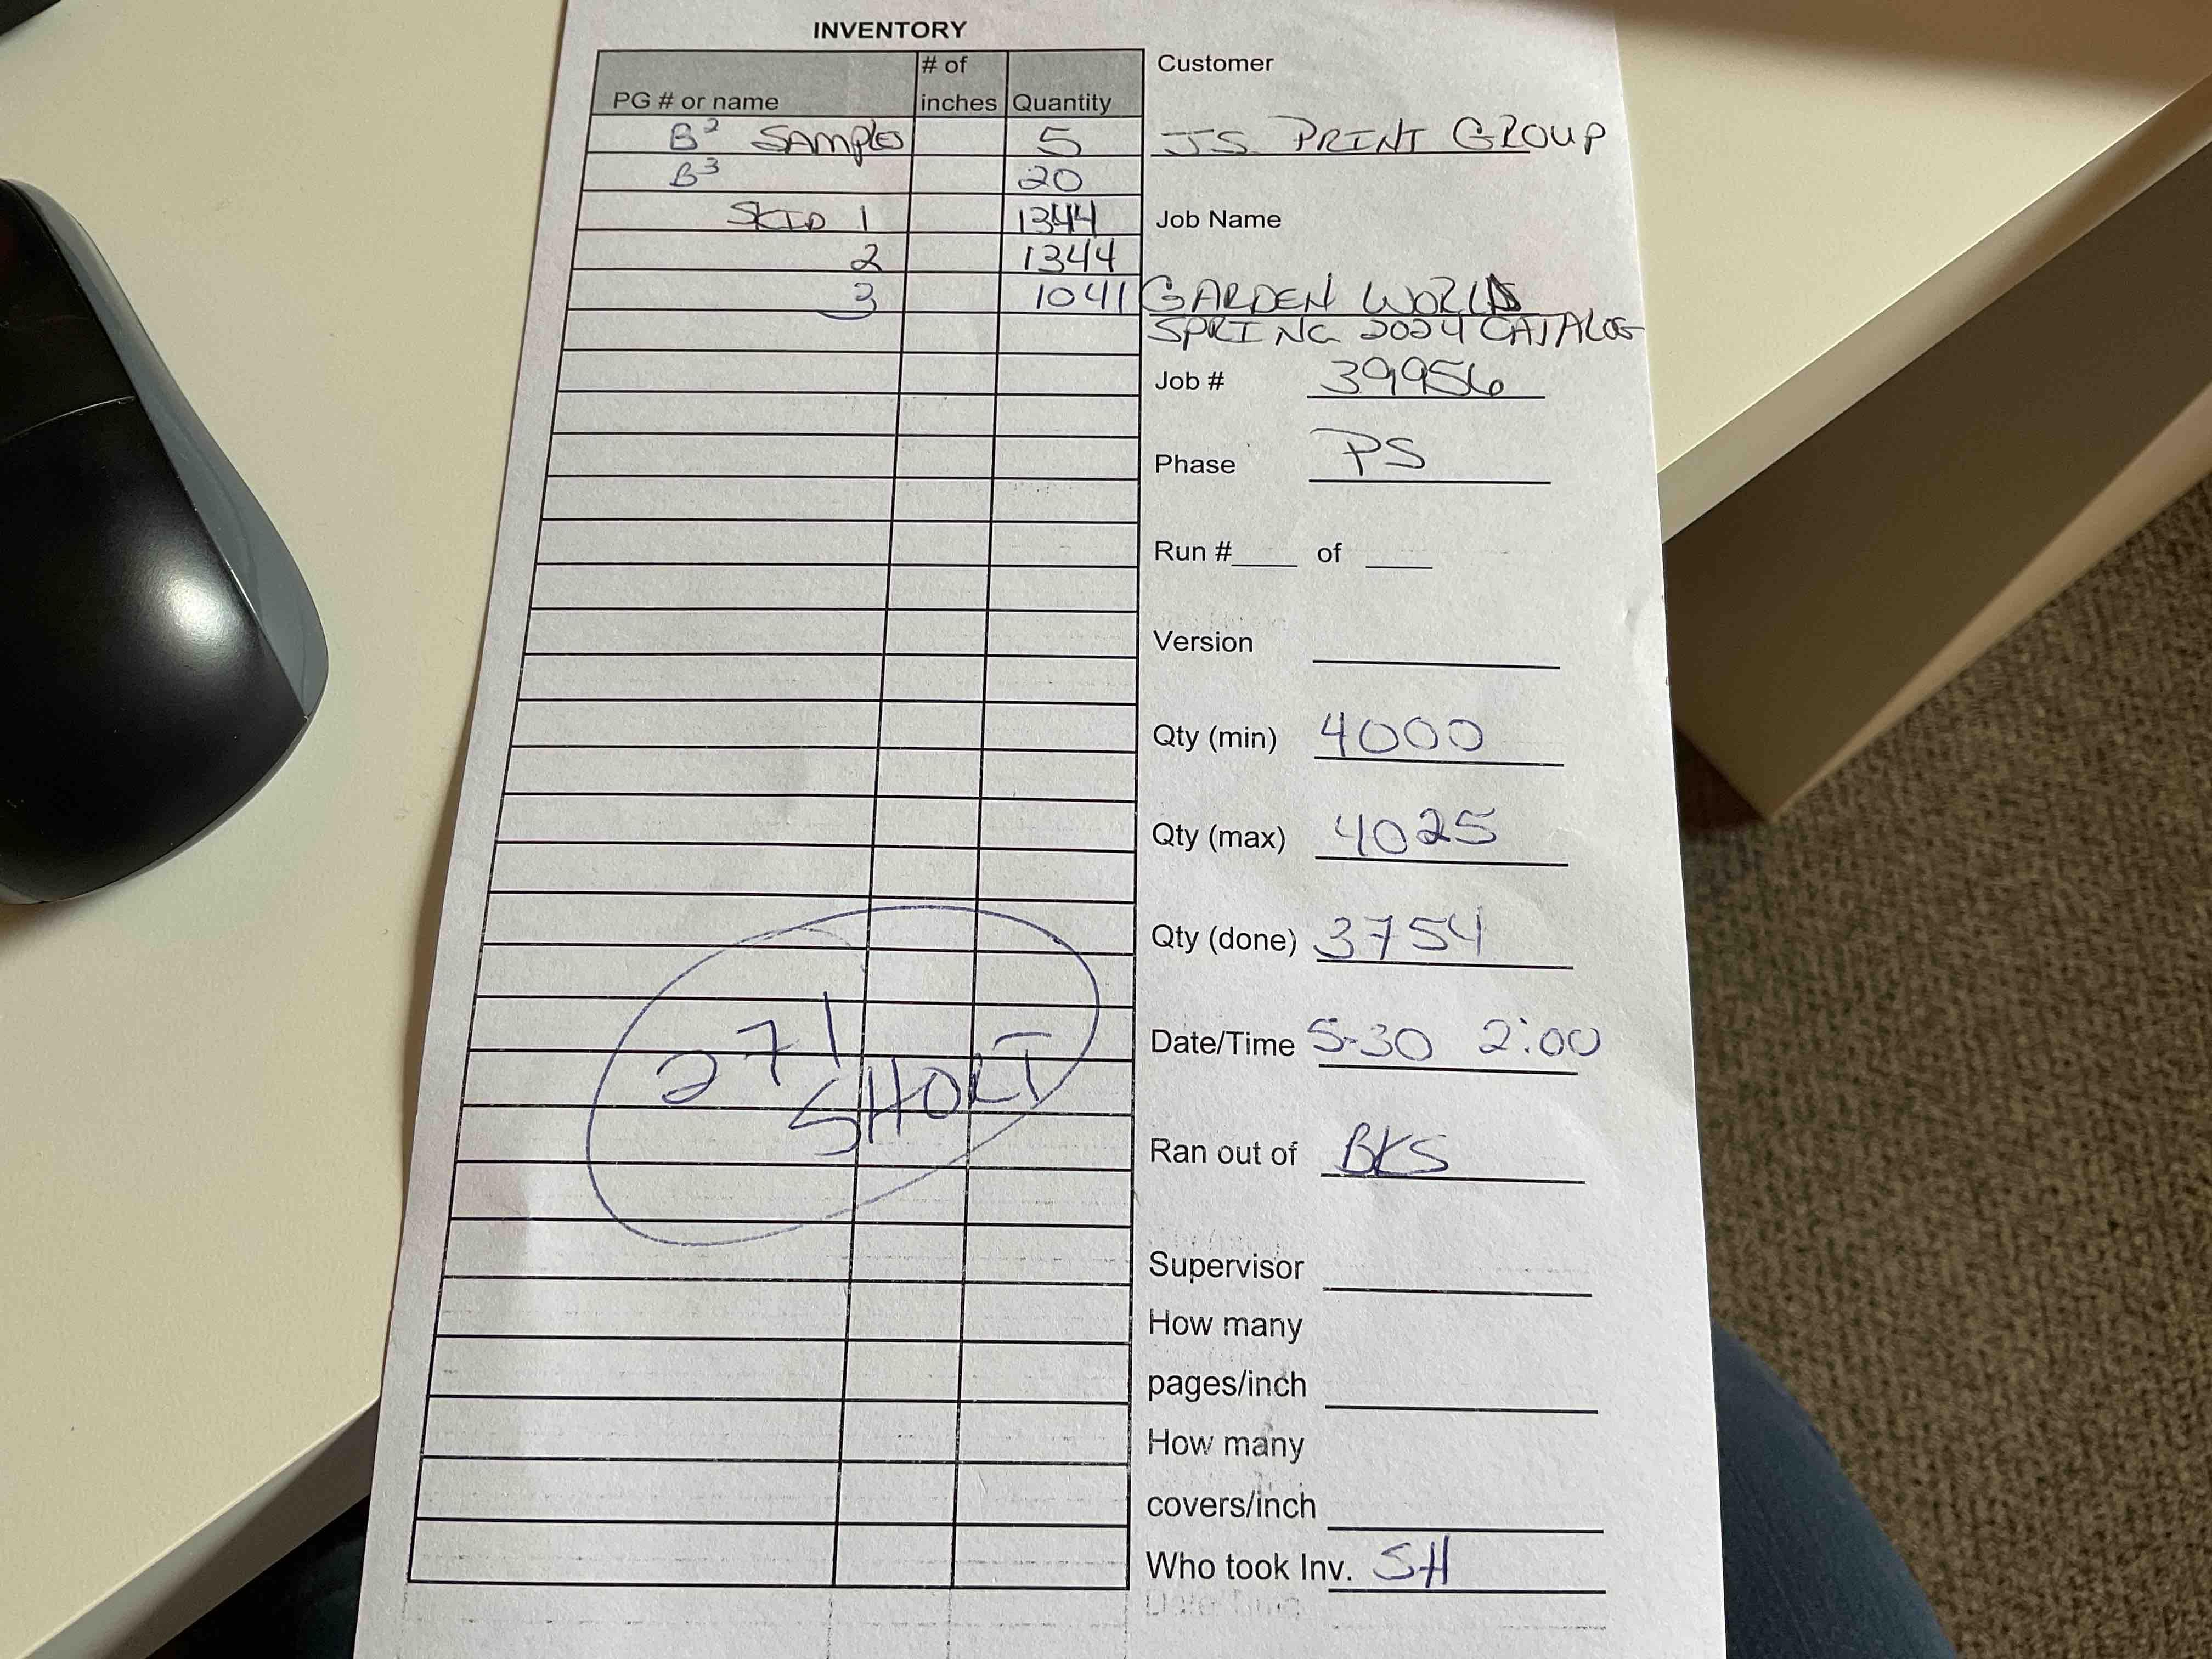 INVENTORY
PG # or name # of inches Quantity
B² SAMPLES 5
B³ 20
SKID 1 1344
2 1344
3 1041
271
SHORT
Customer
JS PRINT GROUP
Job Name
GARDEN WORLD
SPRING 2024 CATALOG
Job # 39956
Phase PS
Run #____ of ____
Version
Qty (min) 4000
Qty (max) 4025
Qty (done) 3754
Date/Time 5-30 2:00
Ran out of BKS
Supervisor
How many
pages/inch
How many
covers/inch
Who took Inv. SH